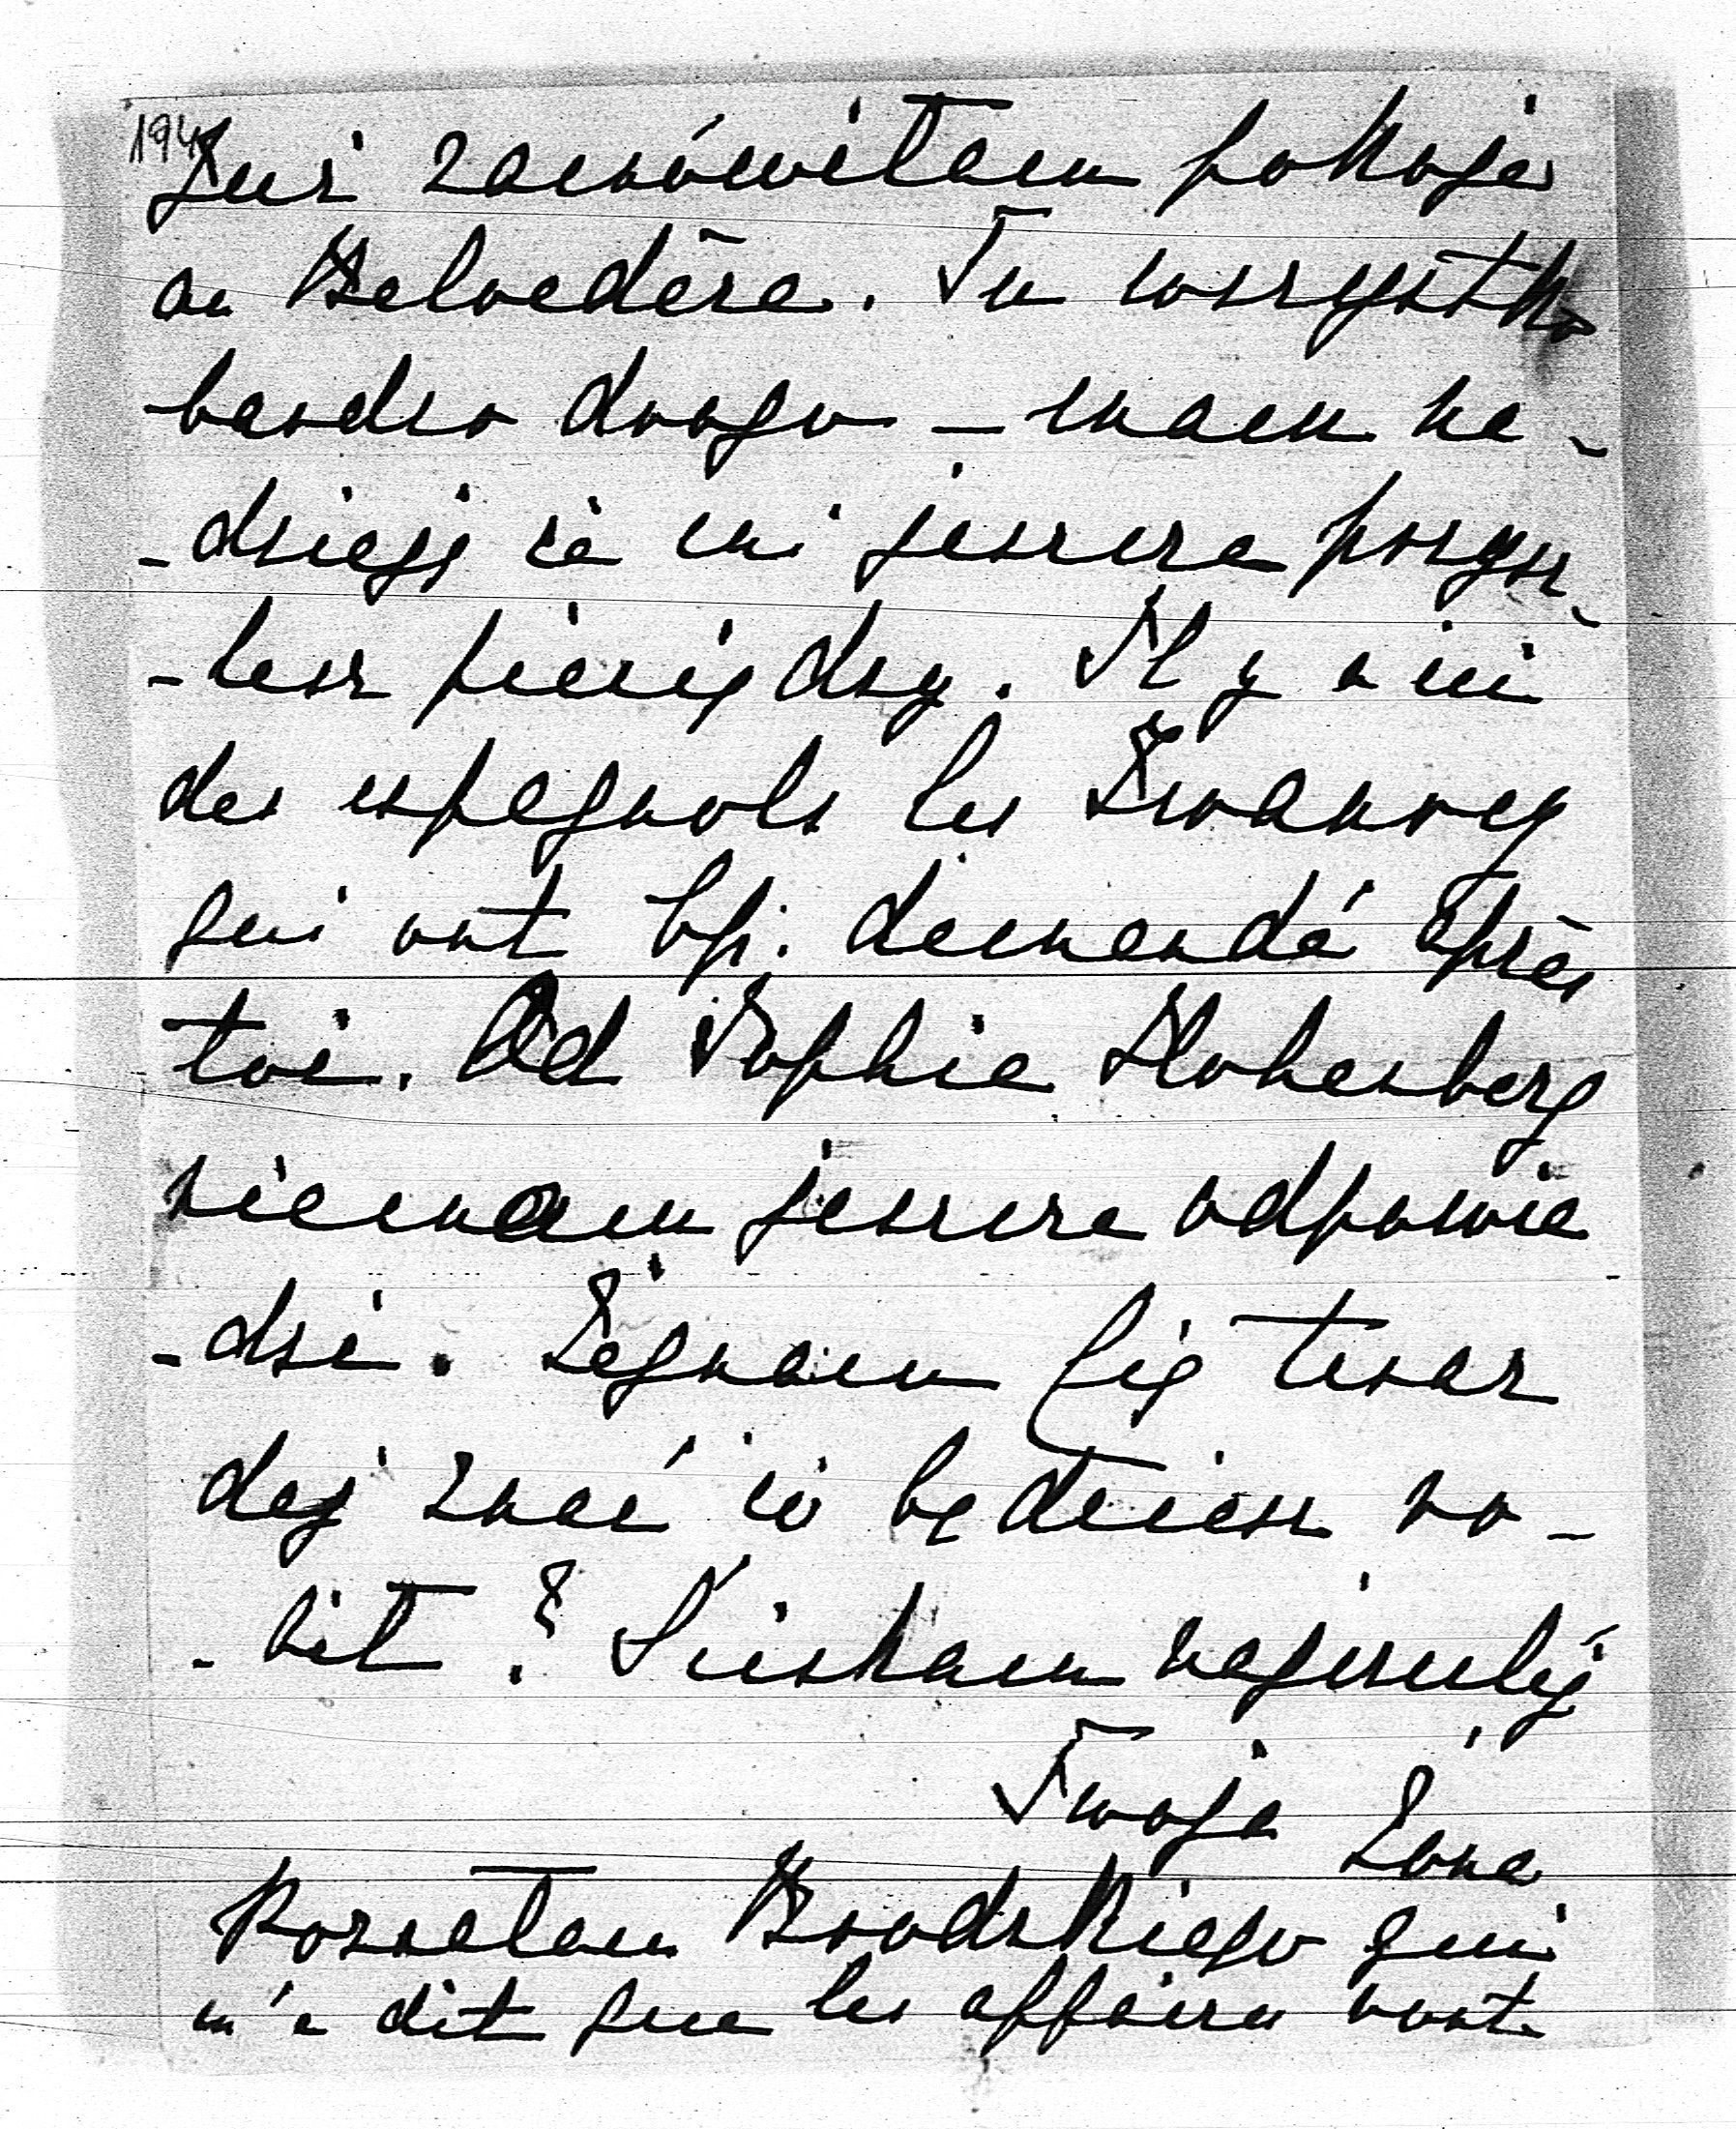 194
Już zamówiłam pokoje
au Belvedère. Tu wszystko
bardzo drogo – mam na-
-dzieję że mi jeszcze przysz-
-lesz pieniędzy. Il y a ici
des espagnols les
qui ont bp. demandé après
toi. Od Sophie Hohenberg
niemam jeszcze odpowie
-dzi. Żegnam Cię teraz
daj znać co będziesz ro-
-bił? Ściskam najczulej
Twoja Żona
Poznałam Brodskiego qui
m'a dit que les affaires vont